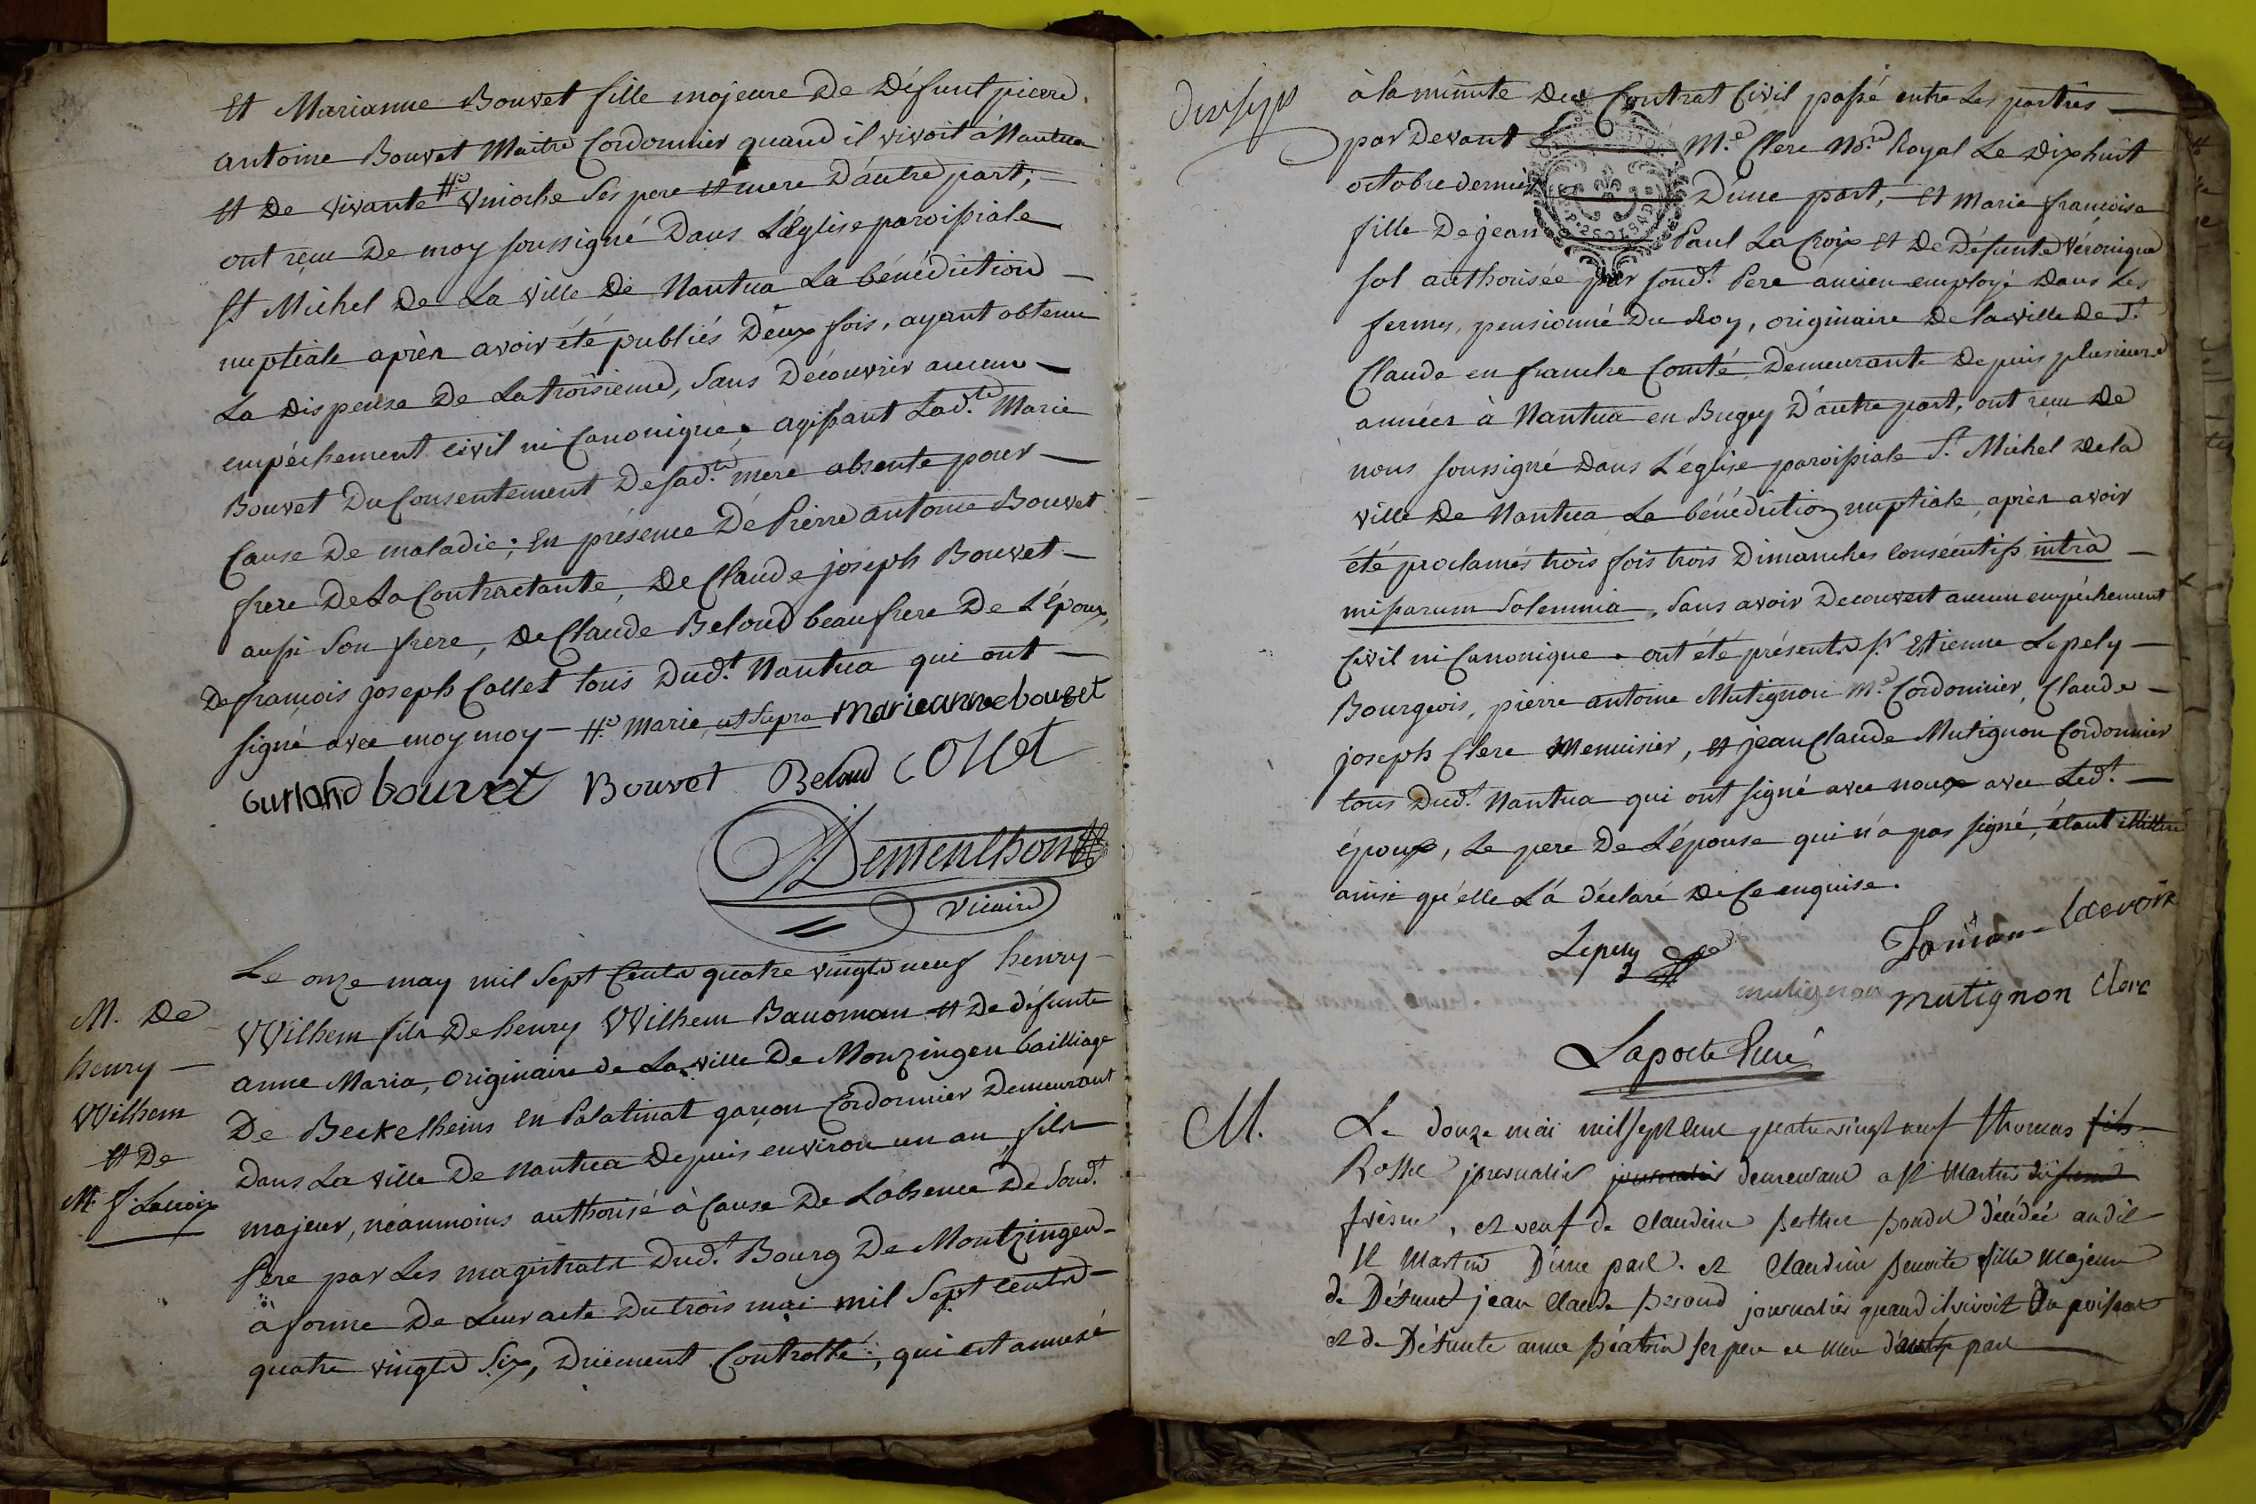 Et Marianne Bouvet fille majeure De Défunt pierre
antoine Bouvet Maitre Cordonnier quand il vivoit à Nantua
et De vivante #e Vuioche Ses pere et mere D'autre part;
ont reçu De moy soussigné Dans L'église paroissiale
St Michel De La ville De Nantua La bénédiction
nuptiale après avoir été publiés Deux fois, ayant obtenu
La Dispense De La troisieme, Sans Découvrir aucun
empêchement civil ni Canonique, agissant Lad.te Marie
Bouvet Du Consentement De sad.te mere absente pour
Cause De maladie; En présence De Pierre antoine Bouvet
frere De La Contractante, De Claude joseph Bouvet
aussi Son frere, De Claude Beloud beaufrere De L'Epoux,
De françois joseph Collet tous Dud.t Nantua qui ont
signé avec moy moy #e Marie, ut supra marieanne bouvet
Gurland bouvet Bouvet Beloud COllet
Dementhon
vicaire
M. De
henry
Wilhem
et De
M. f. Lacroix
Le onze may mil Sept Cents quatre vingts neuf henry
Wilhem fils De henry Wilhem Bauoman et De défunte
anne Maria, Originaire de La ville De Monzingen bailliage
De Beckelheins en Palatinat garçon Cordonnier Demeurant
Dans La ville De Nantua Depuis environ un an, fils
majeur, néanmoins authorisé à Cause De L'absence De Sond.t
Pere par Les magistrats Dud.t Bourg De Montzingen
à forme De Leur acte Du trois mai mil Sept cents
quatre vingts Six, Duement Controllé, qui est annexé
à la minute Du Contrat Civil passé entre Les parties
par Devant M.e Clere No.re Royal Le Dixhuit
octobre dernier D'une part, Et Marie françoise
fille De jean Paul La Croix et De Défunte Véronique
sol authorisée par sond.t Pere ancien employé Dans Les
fermes, pensionné Du Roy, originaire De la ville De S.t
Claude en franche Comté Demeurante Depuis plusieurs
années à Nantua en Bugey D'autre part, ont reçu De
nous soussigné Dans L'église paroissiale S.t Michel De la
ville De Nantua La bénédiction nuptiale, après avoir
été proclamés trois fois trois Dimanches consécutifs intrà
missarum Solemnia, Sans avoir Decouvert aucun empêchement
Civil ni Canonique. ont été présents s.r Etienne Lepely
Bourgeois, pierre antoine Mutignon M.e Cordonnier, Claude
joseph Clere Menuisier, et jean Claude Mutignon Cordonnier
tous Dud.t Nantua qui ont signé avec nous avec Led.t
époux, Le pere De L'épouse qui n'a pas signé, étant illittré
ainsi qu'elle L'a déclaré De Ce enquise.
Lepely Lacroix
mutignon mutignon Clerc
Laporte Curé
M.
Le douze mai mil sept cent quatre vingt neuf thomas fils
journalier journalier demeurant a St Martin
fresne, et veuf de Claudine décédée audit
St Martin D'une part. et Claudine fille Majeure
de Défunt jean Claude journalier quand il vivoit
et de Défunte anne ses pere et mere d'autre part